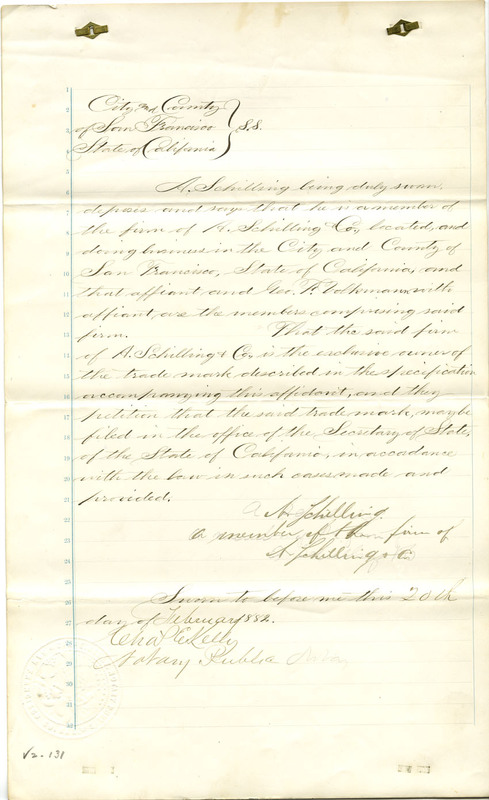 City and County
of San Francisco } S.S.
State of California
A. Schilling being duly sworn
deposes and says that he is a member of
the firm of A. Schilling & Co., located, and
doing business in the City and County of
San Francisco, State of California, and
that affiant and Geo. F. Volkmann with
affiant, are the members comprising said
firm. That the said firm
of A. Schilling & Co., is the exclusive owner of
the trade mark described in the specification
accompanying this affidavit, and they
petition that the said trade mark, may be
filed in the office of the Secretary of State,
of the State of California, in accordance
with the law in such cases made and
provided.
A. Schilling.
a member of the firm of
A. Schilling & Co
Sworn to before me this 20th
day of February 1882.
Chas E Kelly
Notary Public
V2-131
1
2
3
4
5
6
7
8
9
10
11
12
13
14
15
16
17
18
19
20
21
22
23
24
25
26
27
28
29
30
31
32